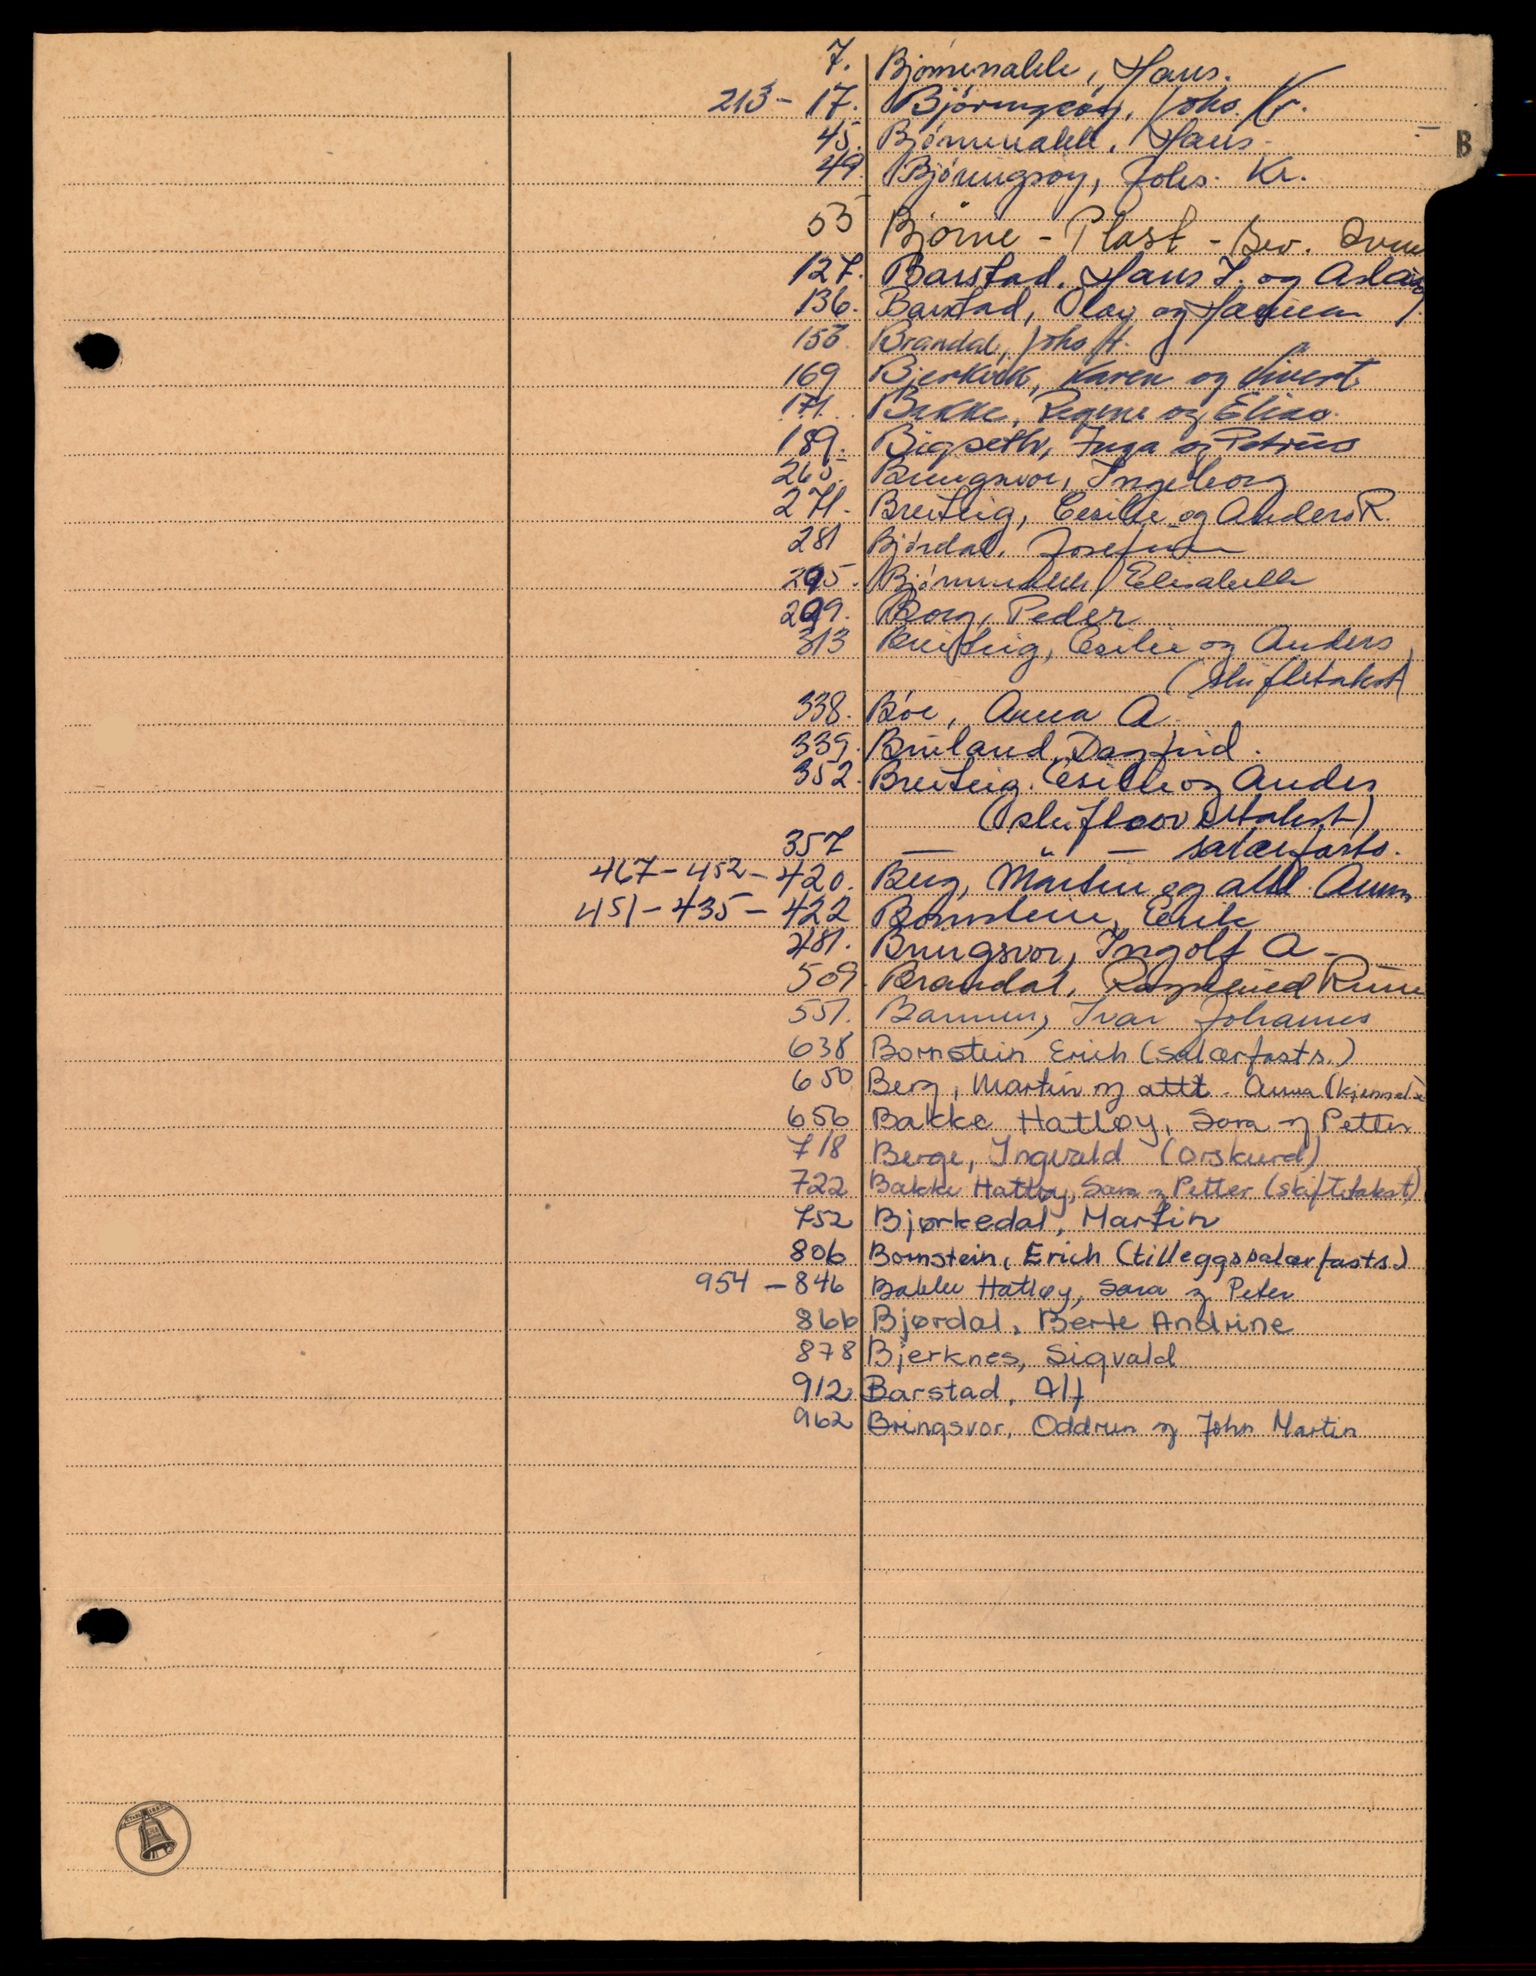 7. Bjørnenakk, Hans.
213 - 17. Bjøringsøy, Johs. Kr.
45. Bjørnenakk, Hans.
49. Bjøringsøy, Johs. Kr.
B
53 Bjørne - Plast - Bev.
127. Barstad, Hans J. og Aslaug
136. Barstad, Olav og
153. Brandal, Johs H.
169 Bjerkvik, Karen og Sivert.
171. Bakke, Regine og Elias.
189. Bigseth, Inga og Petrus
265. Bringsvor, Ingeborg
271. Breiteig, Cesilie og Anders R.
281 Bjørdal, Josefine
295. Bjørnenakk, Elisabeth
299. Borg, Peder
313 Breiteig, Cesilie og Anders
(skiftetakst)
338. Bøe, Anna A.
339. Bruland, Dagfrid.
352. Breiteig. Cesilie og Anders
(skifteovertakst)
357 — " — salærfasts.
467 - 452 - 420. Berg, Martin og attl. Anna
451 - 435 - 422 Bornstein, Erik
481. Bringsvor, Ingolf A.
509. Brandal, Ragnfrid
551. Barmen, Ivar Johannes
638 Bornstein Erich (salærfasts.)
650 Berg, Martin og attl. Anna
656 Bakke Hatløy, Sara og Petter
718 Berge, Ingvald (orskurd)
722 Bakke Hatløy, Sara og Petter (skiftetakst)
752 Bjørkedal, Martin
806 Bornstein, Erich (tilleggssalærfasts.)
954 - 846 Bakke Hatløy, Sara og Peter
866 Bjørdal, Berte Andrine
878 Bjerknes, Sigvald
912 Barstad, Alf
962 Bringsvor, Oddrun og John Martin